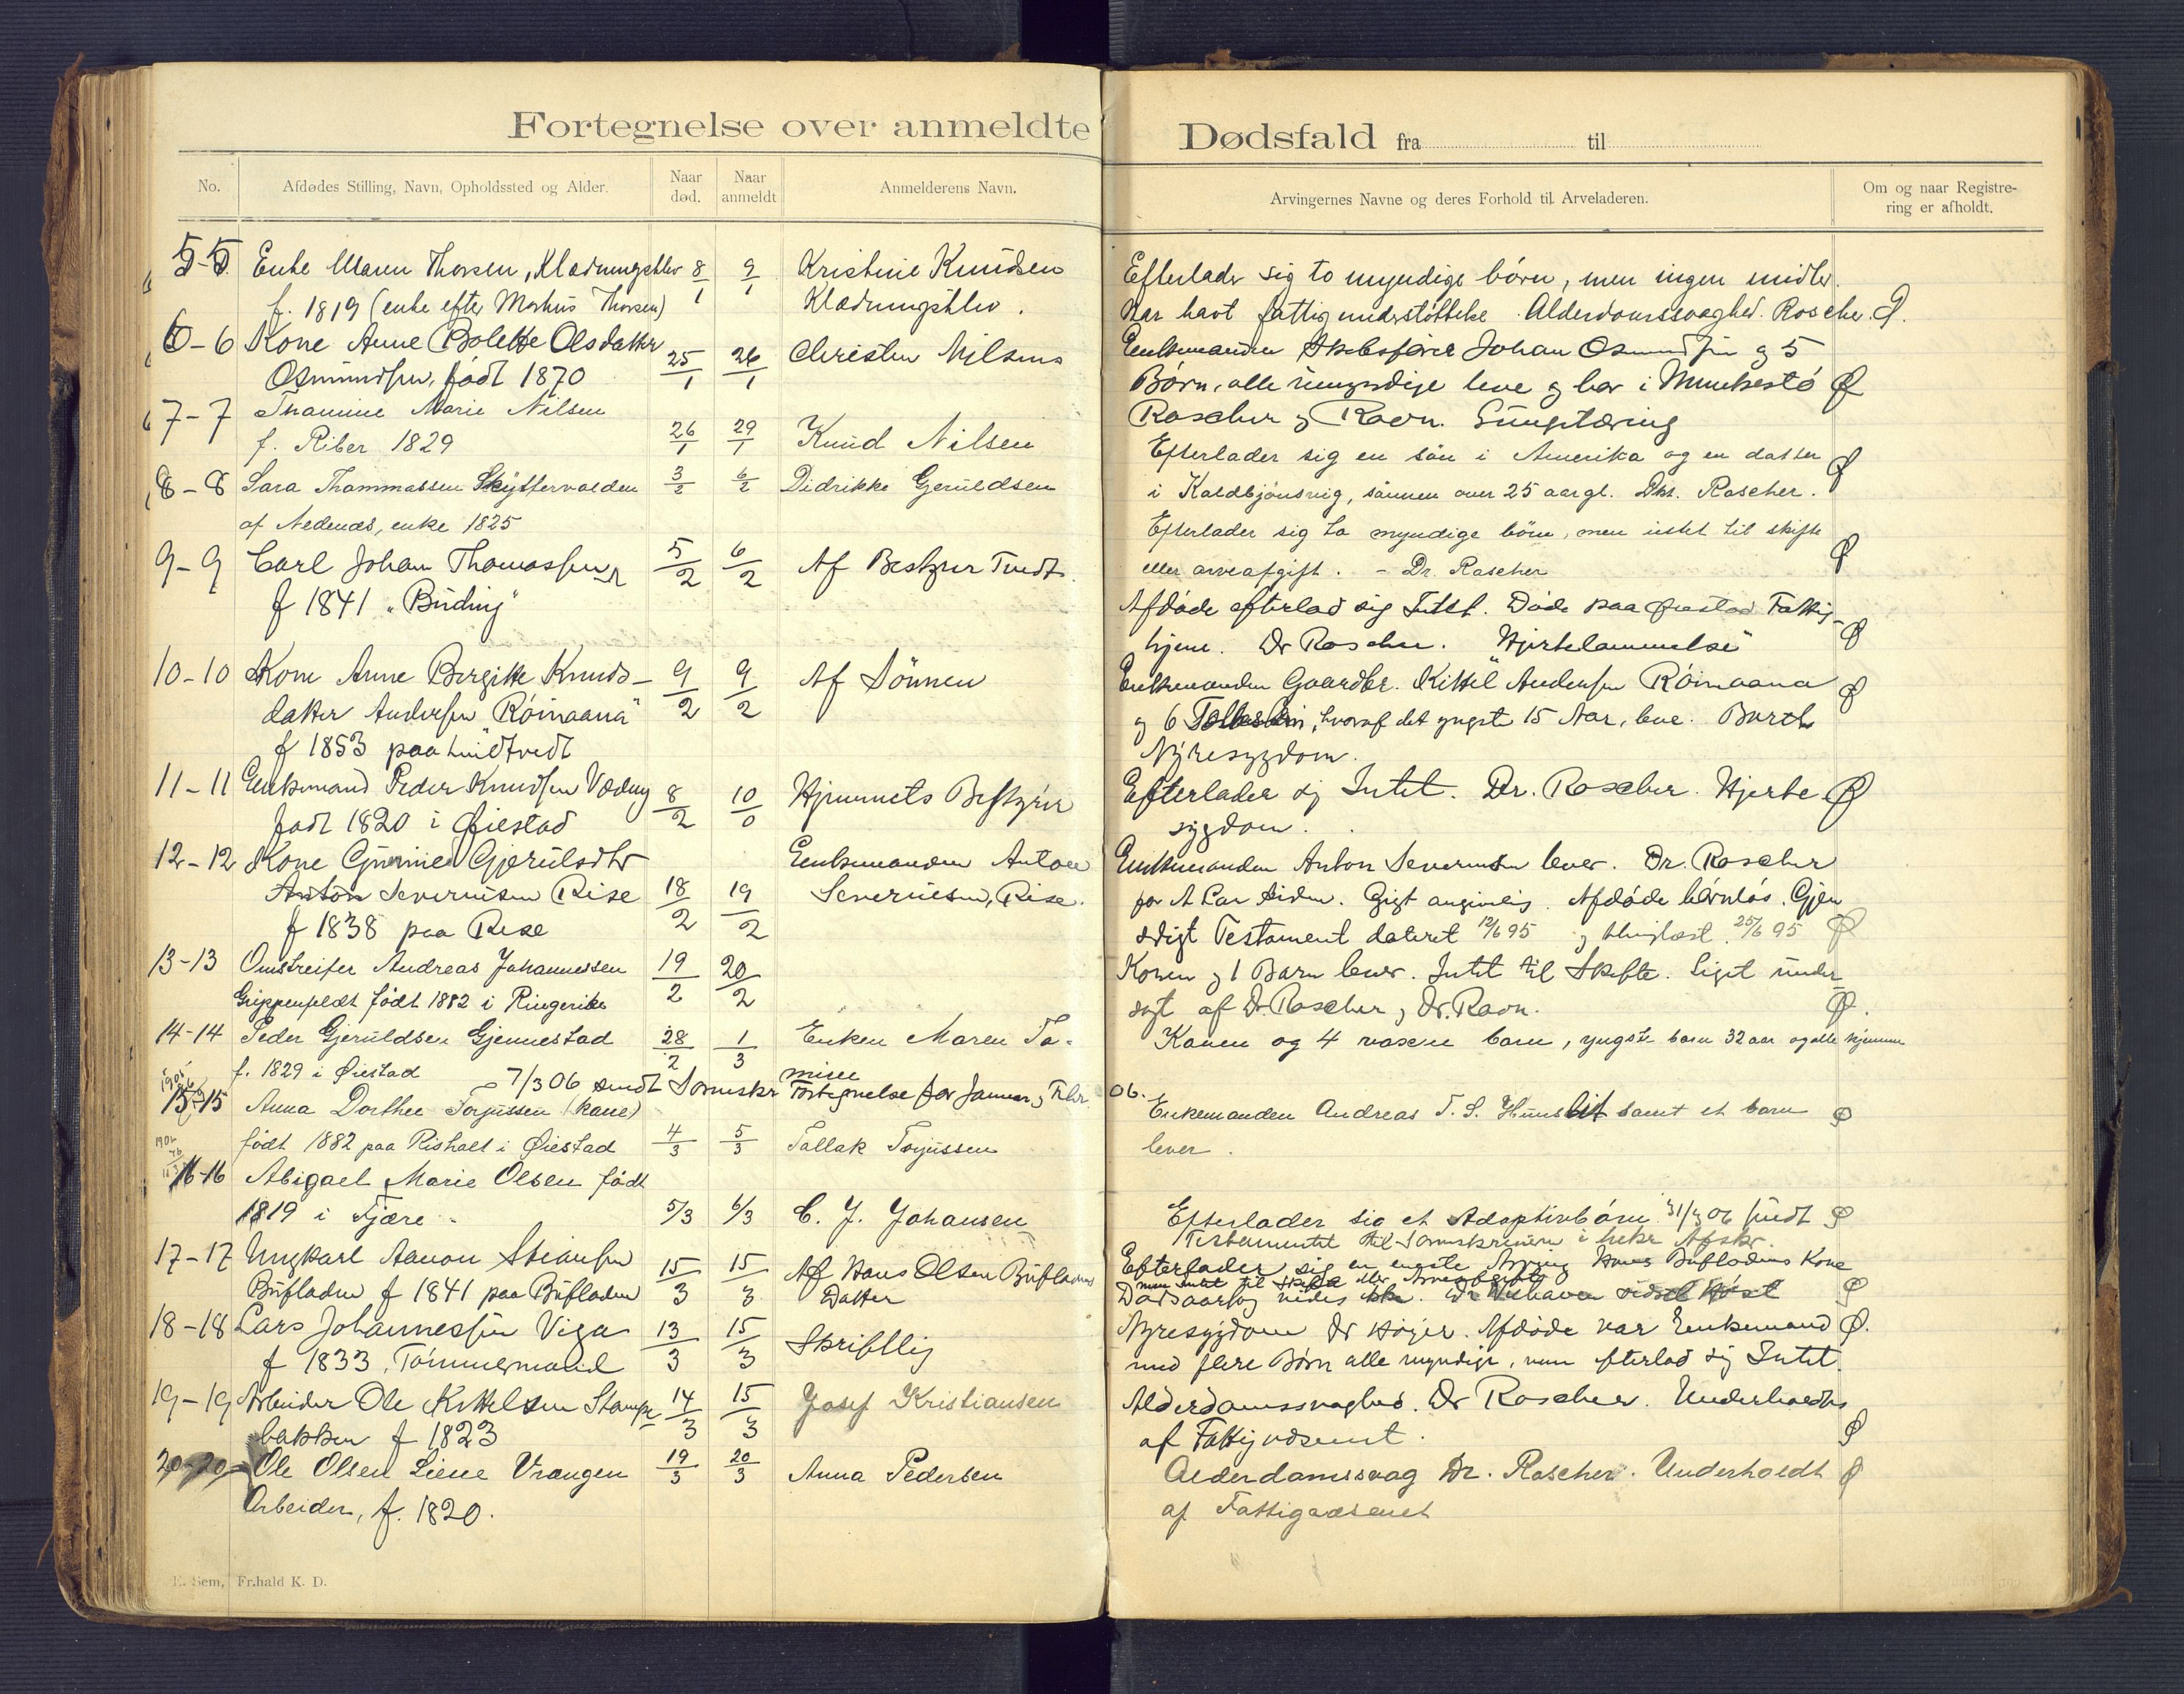 Fortegnelse over anmeldte Dødsfald fra til
No.
Afdødes Stilling, Navn, Opholdssted og Alder.
Naar død.
Naar anmeldt
Anmelderens Navn.
Arvingernes Navne og deres Forhold til Arveladeren.
Om og naar Registre-
ring er afholdt.
5-5 Enke Maren Thorsen, Klædningshlev 8/1 9/1 Kristine Knudsen
f. 1819 (enke efter Markus Thorsen) Klædningshlev.
Efterlader sig to myndige børn, men ingen midler.
Har havt fattigunderstøttelse. Alderdomssvaghed. Roscher. Ø.
6-6 Kone Anne Bolette Olsdatter 25/1 26/1 Christen Nilsens
Osmundsen, født 1870
Enkemanden Skibsfører Johan Osmundsen og 5
Børn, alle umyndige leve og bor i Munkestø Ø
Roscher og Ravn. Lungetæring
7-7 Thamine Marie Nilsen
f. Riber 1829 26/1 29/1 Knud Nilsen
Efterlader sig en søn i Amerika og en datter Ø
i Kaldbjønsvig, sønnen over 25 aar gl. Dhr. Roscher.
8-8 Sara Thommassen Skyttervolden 3/2 6/2 Didrikke Gjeruldsen
af Nedenæs, enke 1825
Efterlader sig to myndige børn, men intet til skifte
eller arveafgift. - Dr. Roscher Ø
9-9 Carl Johan Thomassen 5/2 6/2 Af Bestyrer Tvedt.
f 1841 "Buding"
Afdøde efterlod sig Intet. Døde paa Øiestad Fattig-
hjem. Dr Roscher. "Hjertelammelse" Ø
10-10 Kone Anne Bergitte Knuds- 9/2 9/2 Af Sønnen
datter Andersen "Røinaana"
f 1853 paa Lindtvedt
Enkemanden Gaardbr. Kittil Andersen Røinaana Ø
og 6 hvoraf det yngste 15 Aar, leve. Barth
Nyresygdom.
11-11 Enkemand Peder Knudsen Væding 8/2 10/0 Hjemmets Bestyrer
født 1820 i Øiestad
Efterlader sig Intet. Dr. Roscher. Hjerte Ø
sygdom.
12-12 Kone Gunnild Gjerulsdtr Enkemanden Anton
Anton Severinsen Rise 18/2 19/2 Severinsen, Rise.
f 1838 paa Rise
Enkemanden Anton Severinsen lever. Dr. Roscher
for et Par siden. Gigt angivelig. Afdøde barnløs. Gjen
sidigt Testament dateret 12/6 95 og thinglæst 25/6 95 Ø
13-13 Omstreifer Andreas Johannessen 19/2 20/2
Grippenfeldt født 1882 i Ringerike
Konen og 1 Barn lever. Intet til Skifte. Liget under-
søgt af Dr. Roscher og Dr. Ravn. Ø.
14-14 Peder Gjeruldsen Gjennestad 28/2 1/3 Enken Maren Ta-
f. 1829 i Øiestad mine
Konen og 4 voxne barn, yngste barn 32 aar og alle hjemme
7/3 06 sendt Sorenskr Fortegnelse for Januar og Febr. 06.
15-15 Anna Dorthee Torjussen (kone)
født 1882 paa Rishalt i Øiestad 4/3 5/3 Tallak Torjussen
Enkemanden Andreas T. S. samt et barn Ø
lever.
16-16 Abigael Marie Olsen født
1819 i Fjære - 5/3 6/3 C. J. Johansen
Efterlader sig et Adoptivbarn. 31/3 06 sendt Ø
Testamentet til Sorenskriveren i bekr Afskr.
17-17 Ungkarl Aanon Stiansen 15/3 15/3 Af Hans Olsen Bufladens
Bufladen f 1841 paa Bufladen Datter
Efterlader sig en eneste Arving Hans Bufladens Kone
men Intet til Skifte eller Arveafgift
Dødsaarsag vides ikke. Ø
18-18 Lars Johannessen Viga 13/3 15/3 Skriftlig
f 1833, Tømmermand
Nyresygdom Dr Höyer. Afdøde var Enkemand Ø.
med flere Børn alle myndige, men efterlod sig Intet.
19-19 Arbeider Ole Kittelsen Stampe 14/3 15/3 Josef Kristiansen
bakken f 1823
Alderdomssvaghed. Dr Roscher. Underholdtes
af Fattigvæsenet. Ø
20-20 Ole Olsen Liene Vrangen 19/3 20/3 Anna Pedersen
Arbeider, f. 1820.
Alderdomssvag Dr. Roscher. Underholdt Ø
af Fattigvæsenet
E. Sem, Fr.hald K. D.